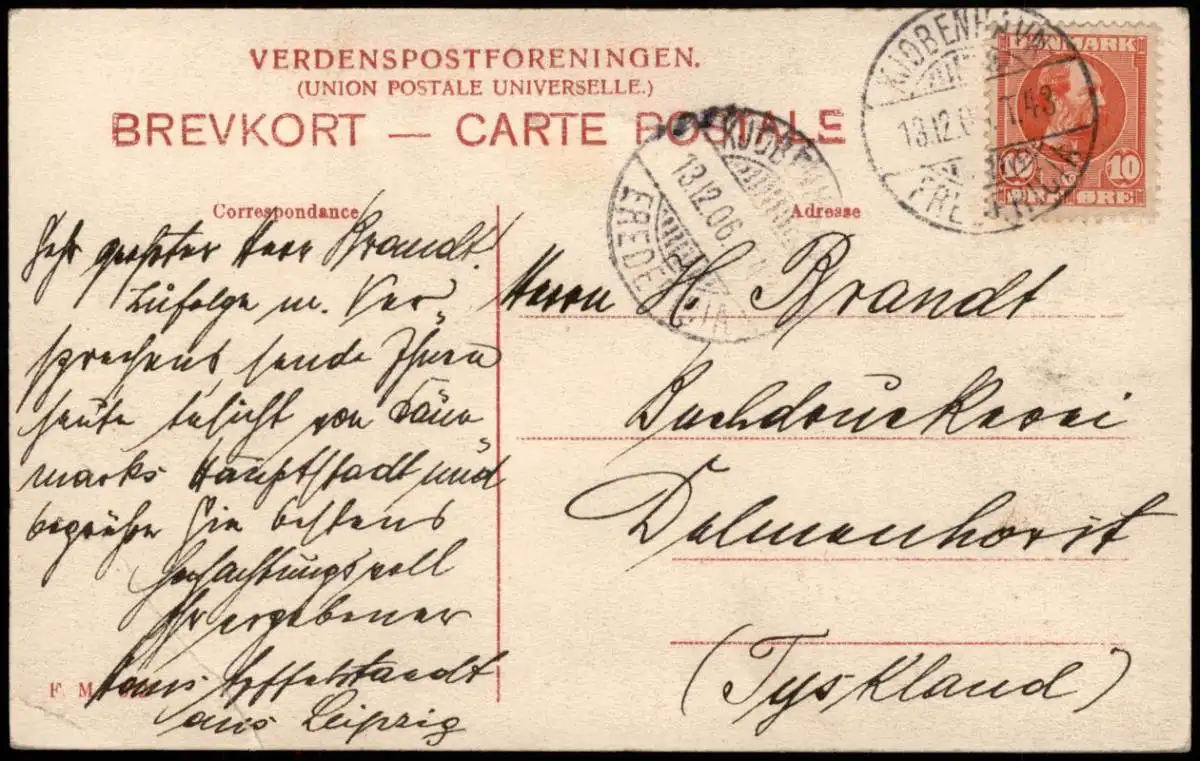 VERDENSPOSTFORENINGEN.
(UNION POSTALE UNIVERSELLE.)
BREVKORT — CARTE POSTALE
KJØBENHAVN
13.12.0
7.43
FREDERICIA
DANMARK
10 10
ØRE
KJØBENHAVN
13.12.06.
FREDERICIA
Correspondance
Adresse
Sehr geehrter Herr Brandt.
Zufolge m. Ver„
sprechens sende Ihnen
heute von Däne„
marks Hauptstadt und
begrüße Sie bestens
Hochachtungsvoll
Ihr ergebener
Hans
aus Leipzig
Herrn H. Brandt
Buchdruckerei
Delmenhorst
(Tyskland)
F. M.